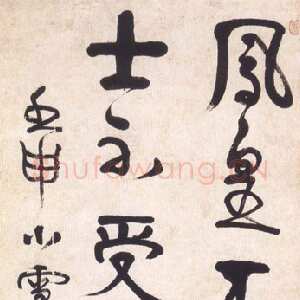 鳳皇
士不受
壬申小雪
shufawang.cn